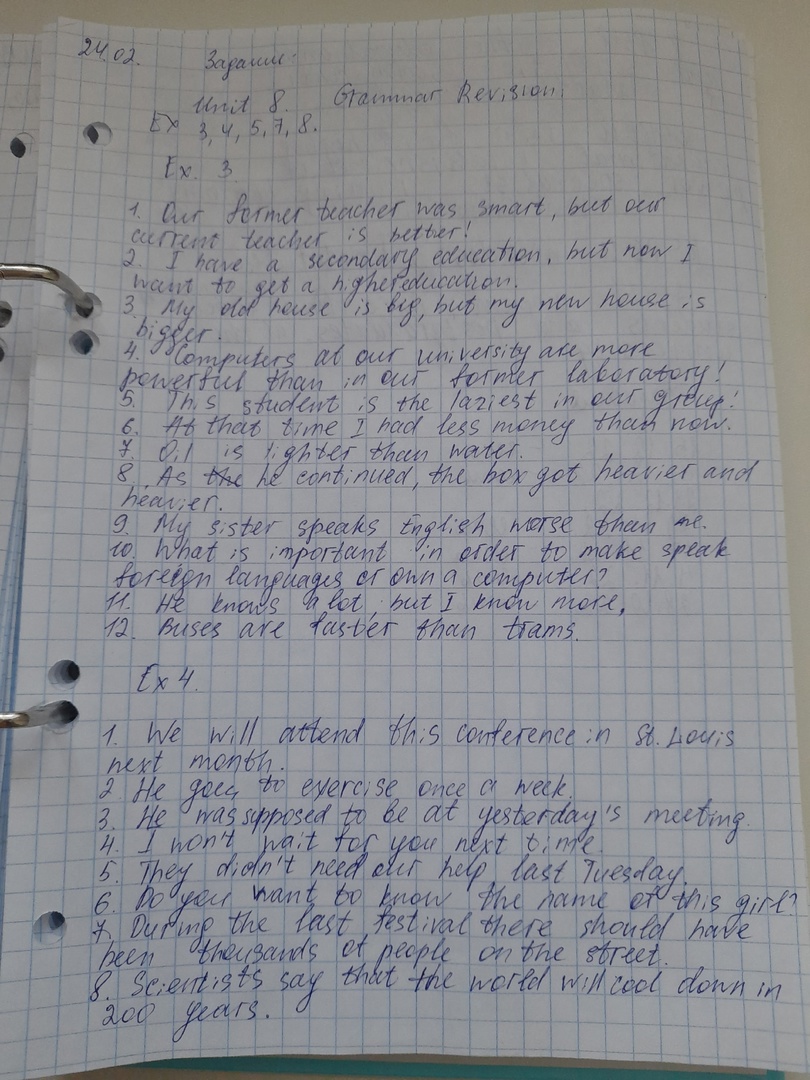 24.02. Задание:
Unit 8. Grammar Revision.
Ex 3, 4, 5, 7, 8.
Ex. 3
1. Our former teacher was smart, but our
current teacher is better!
2. I have a secondary education, but now I
want to get a higher education.
3. My old house is big, but my new house is
bigger.
4. Computers at our university are more
powerful than in our former laboratory!
5. This student is the laziest in our group!
6. At that time I had less money than now.
7. Oil is lighter than water.
8. As the he continued, the box got heavier and
heavier.
9. My sister speaks English worse than me.
10. What is important in order to make speak
foreign languages or own a computer?
11. He knows a lot, but I know more.
12. Buses are faster than trams.
Ex 4.
1. We will attend this conference in St. Louis
next month.
2. He goes to exercise once a week.
3. He was supposed to be at yesterday's meeting.
4. I won't wait for you next time.
5. They didn't need our help last Tuesday.
6. Do you want to know the name of this girl?
7. During the last festival there should have
been thousands of people on the street.
8. Scientists say that the world will cool down in
200 years.